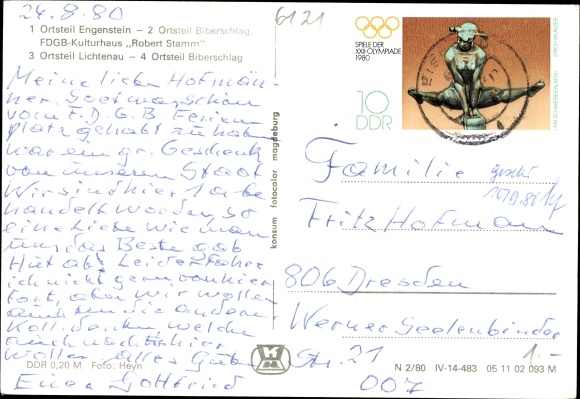 24.8.80
6121
1 Ortsteil Engenstein – 2 Ortsteil Biberschlag,
FDGB-Kulturhaus „Robert Stamm"
3 Ortsteil Lichtenau – 4 Ortsteil Biberschlag
Meine lieben Hofmän-
ner. Soetwas schön
vom F.D.G.B Ferien
platz gehabt zu haben
war ein gr. Geschenk
von unserem Staat
Wir sind hier 1a be
handelt worden, so
eine Liebe wie man
nur das Beste gab
Hut ab, Leider fahre
ich nicht gern von hier
fort, aber wir wollen
auch an die anderen
Koll. denken, welche
auch sich hier
wollen. Alles Gute
Euer Gottfried
DDR 0,20 M Foto: Heyn
konsum fotocolor magdeburg
SPIELE DER
XXII. OLYMPIADE
1980
10
DDR
AM SCHWEBEBALKEN
ERICH WURZER
Familie
Fritz Hofmann
806 Dresden
Werner Seelenbinder
Str. 21
007
1.-
N 2/80 IV-14-483 05 11 02 093 M